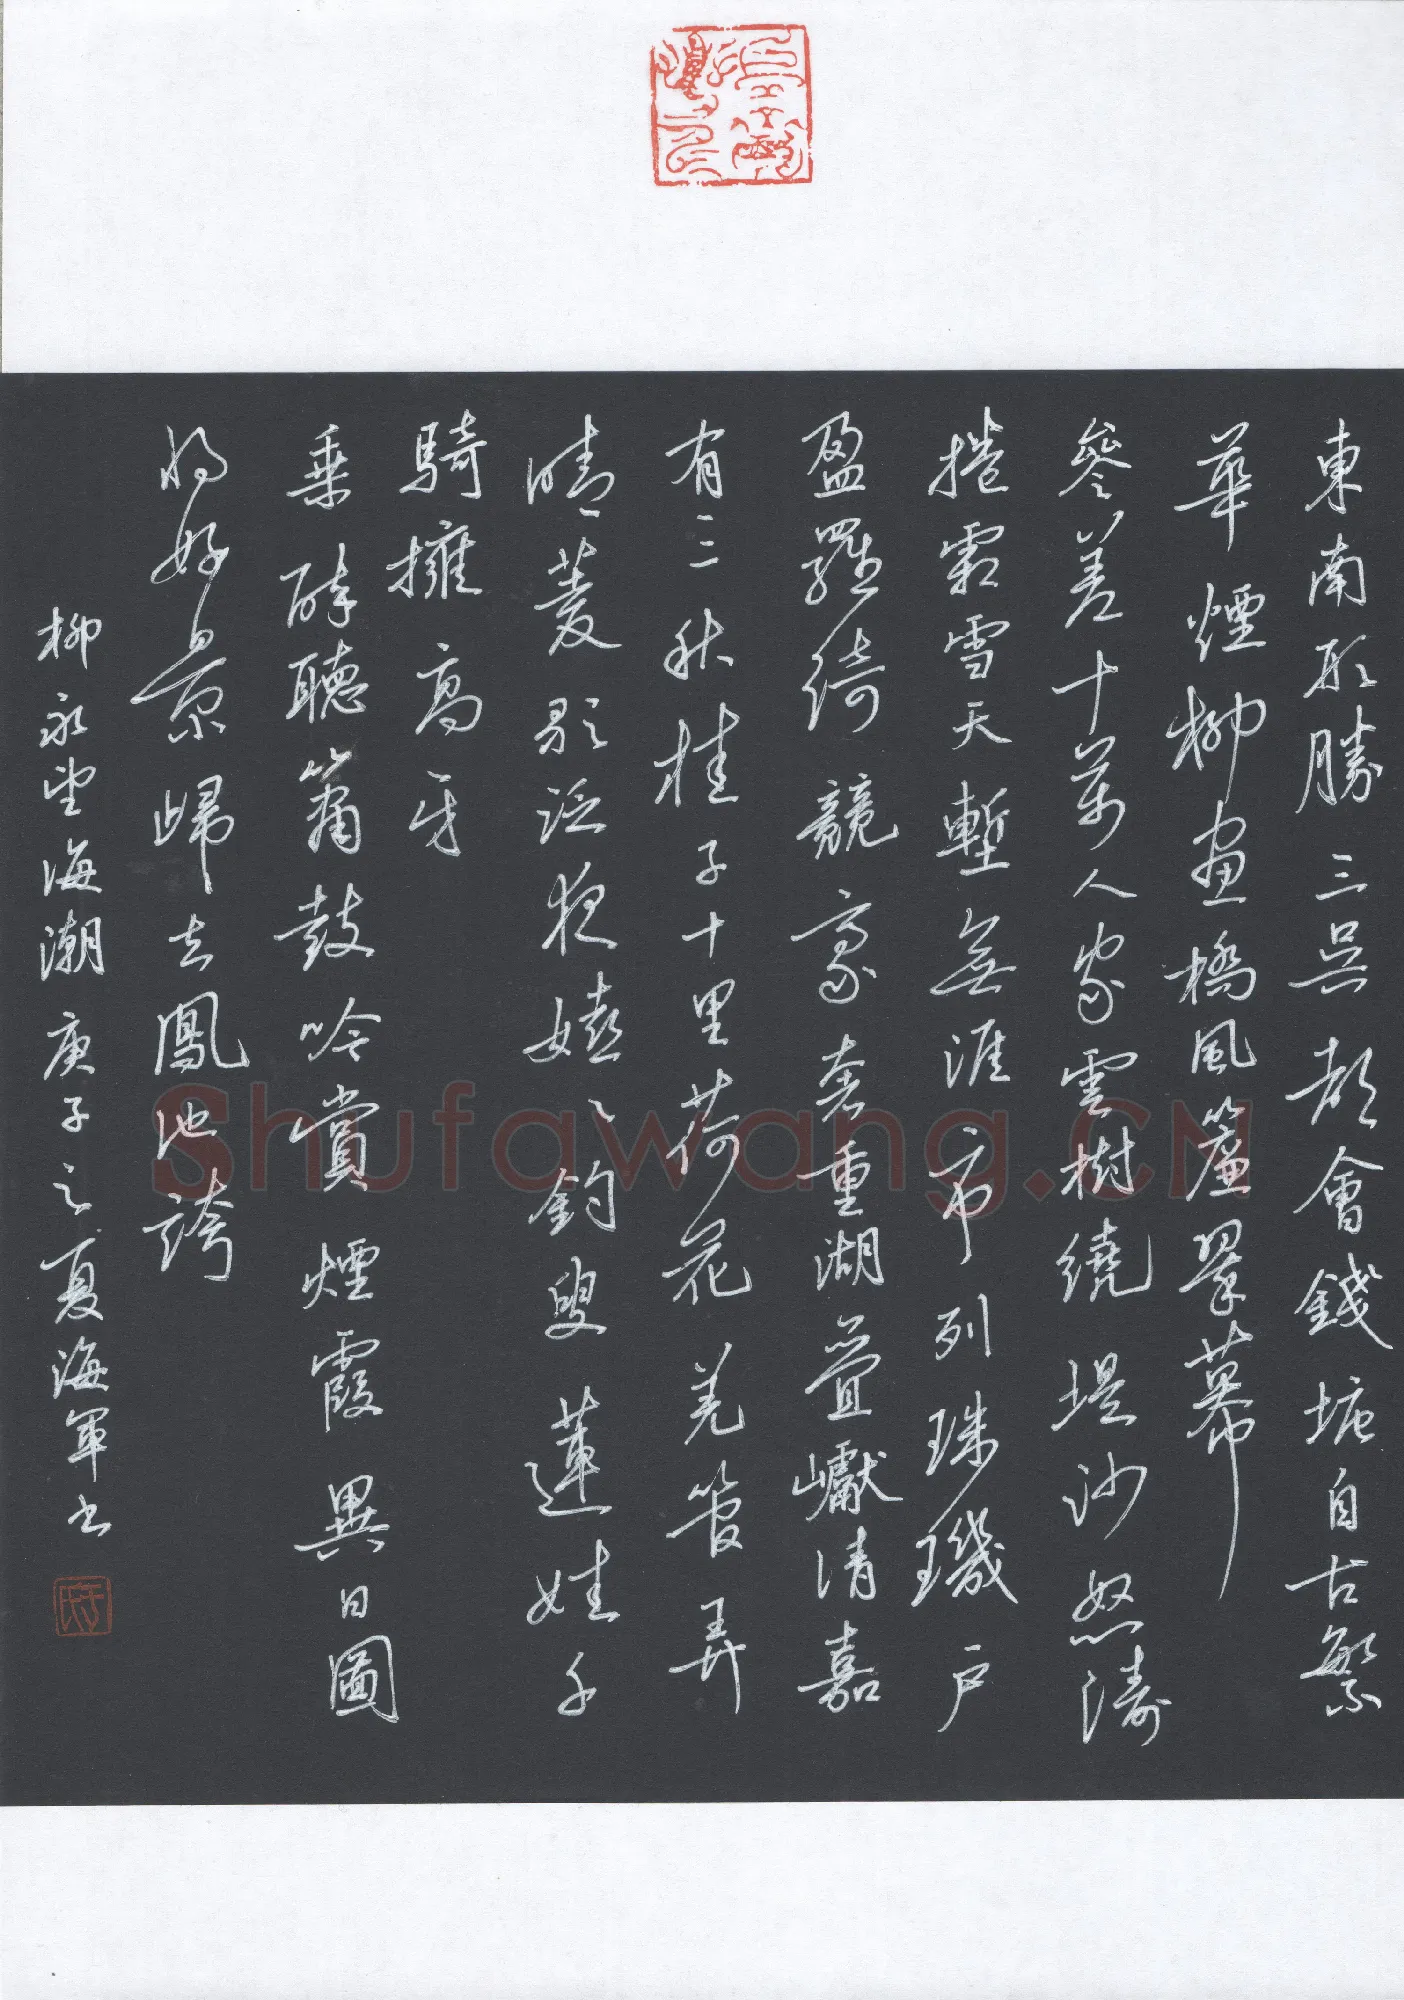 東南形勝三吳都會錢塘自古繁
華煙柳畫橋風簾翠幕
參差十萬人家雲樹繞堤沙怒濤
捲霜雪天塹無涯市列珠璣戶
盈羅綺競豪奢重湖疊巘清嘉
有三秋桂子十里荷花羌管弄
晴菱歌泛夜嬉嬉釣叟蓮娃千
騎擁高牙
乘醉聽簫鼓吟賞煙霞異日圖
將好景歸去鳳池誇
柳永望海潮庚子之夏海軍書
Shufawang.CN